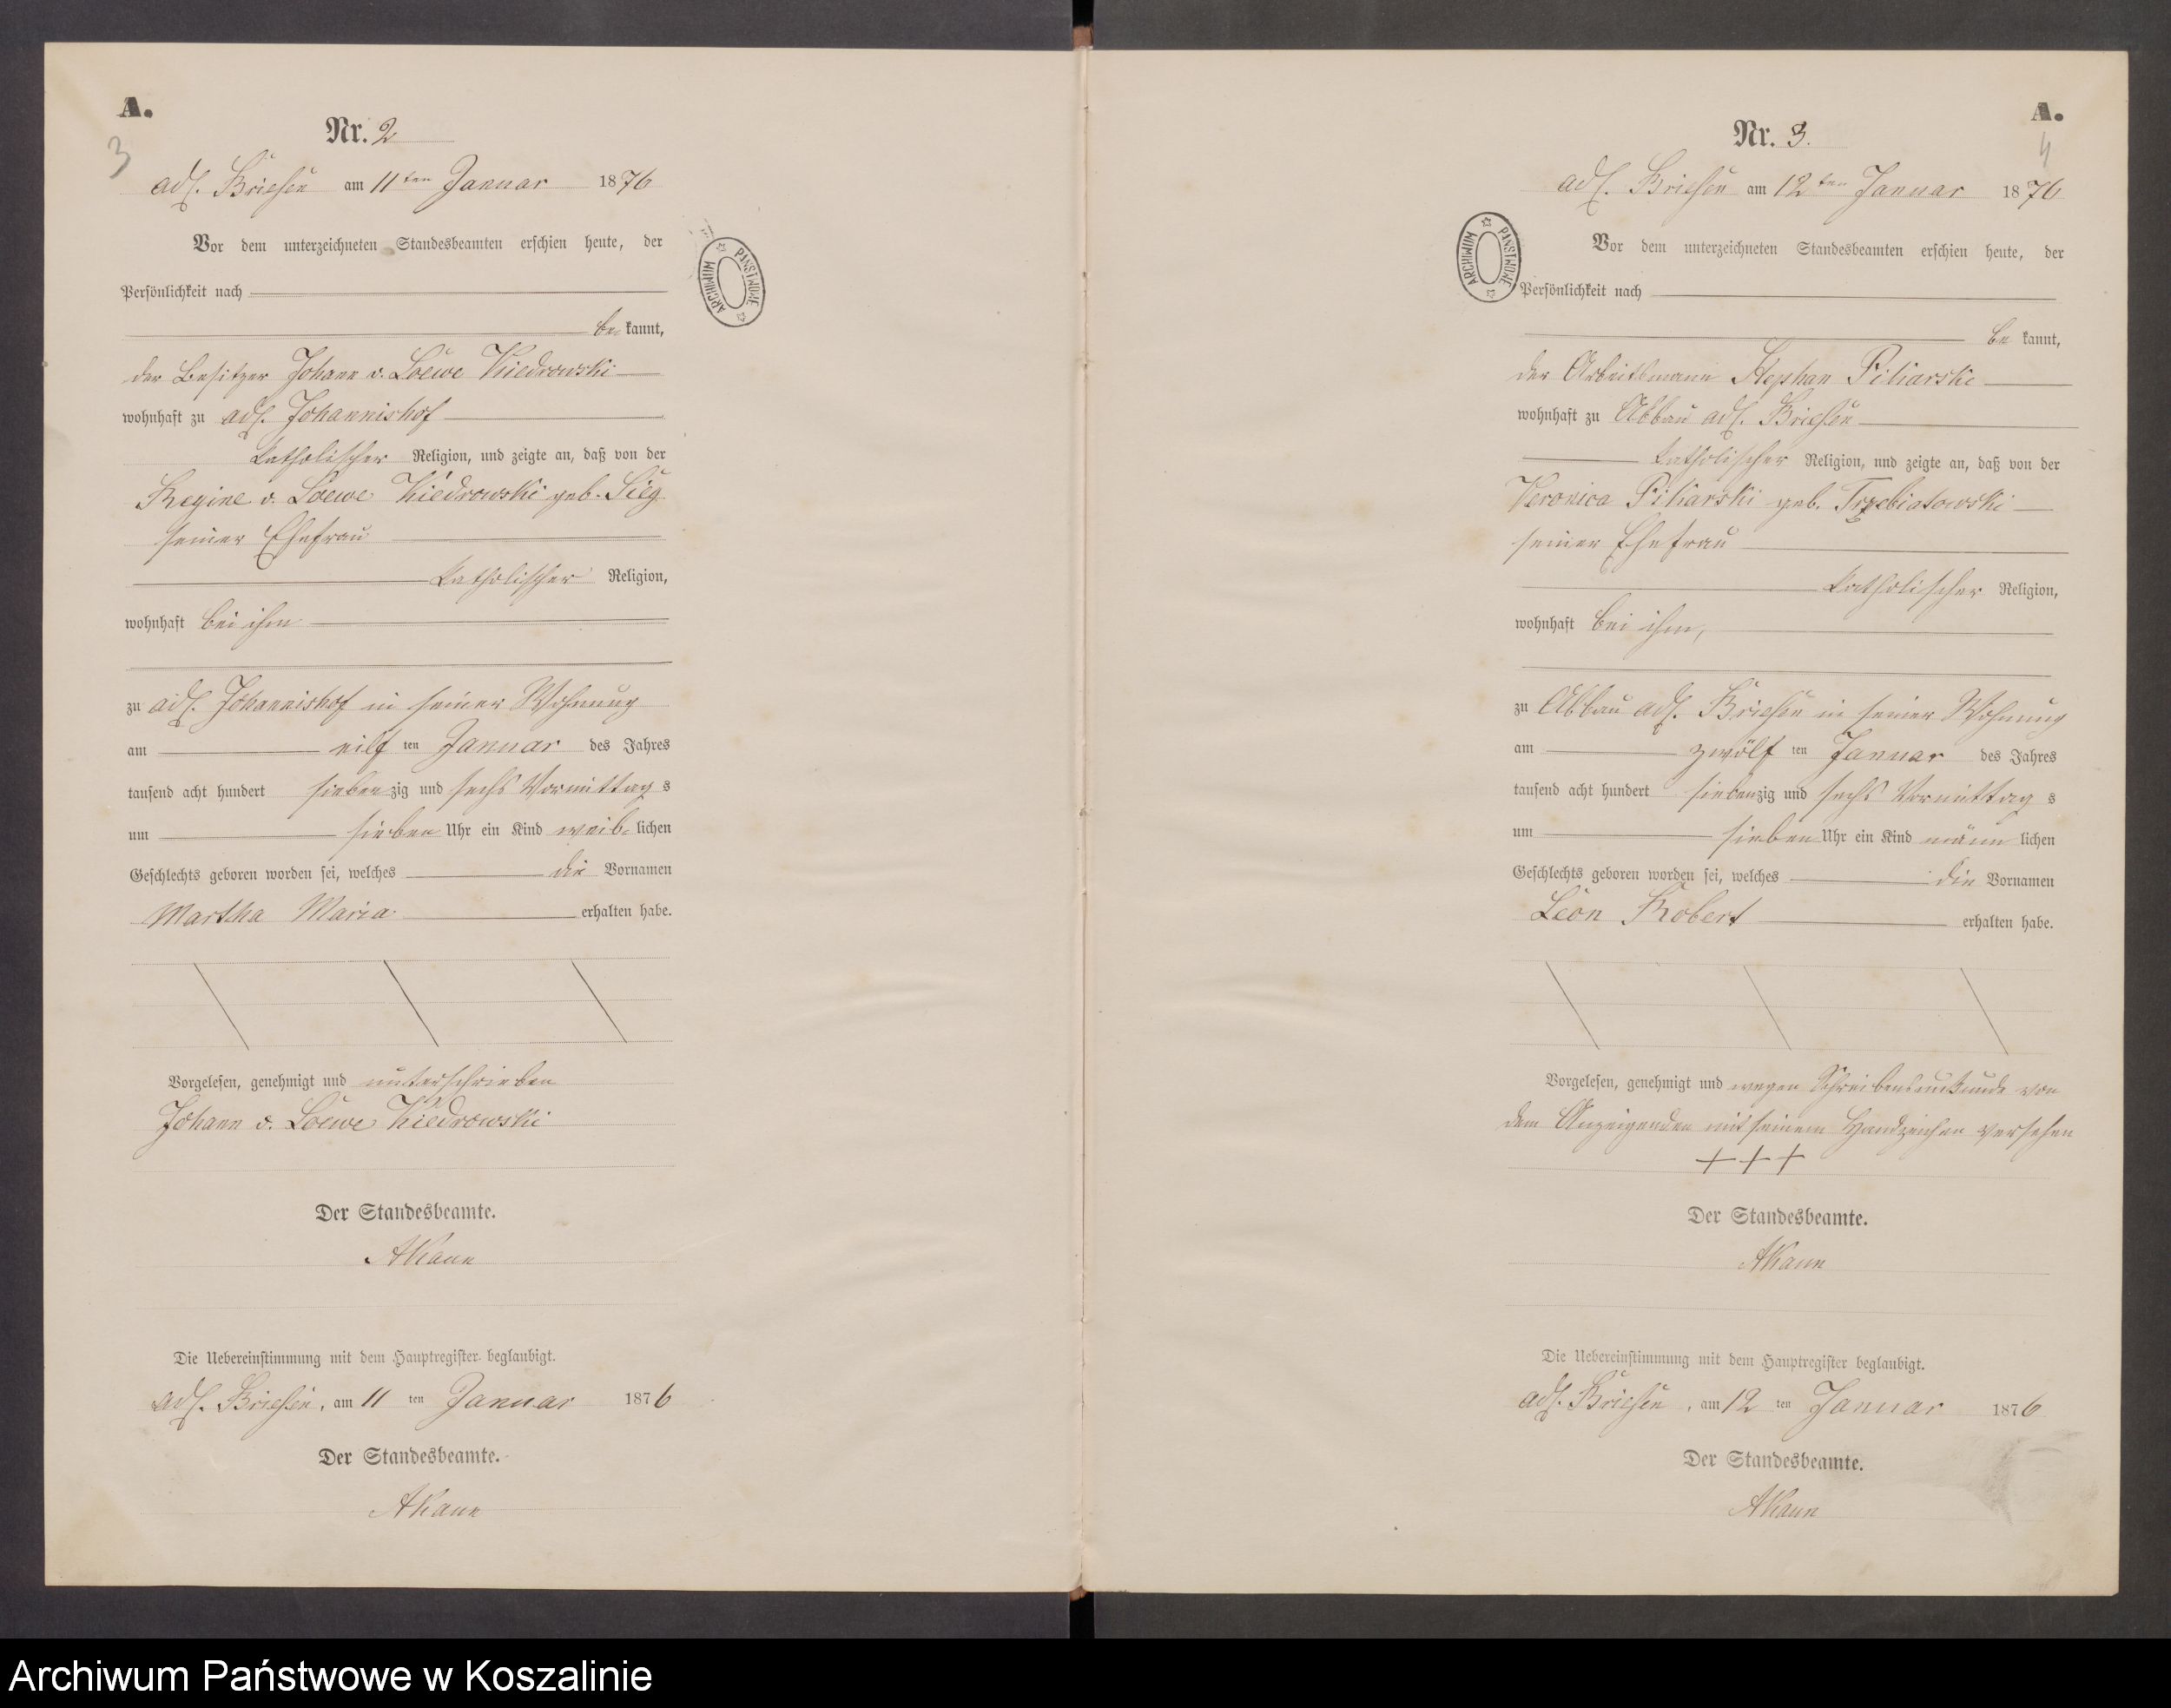 A.
3
Nr. 2
adl. Briesen am 11ten Januar 1876
Vor dem unterzeichneten Standesbeamten erschien heute, der
Persönlichkeit nach
be kannt,
der Besitzer Johann v. Loewe Kiedrowski
wohnhaft zu adl. Johannishof
katholischer Religion, und zeigte an, daß von der
Regine v. Loewe Kiedrowski geb. Sieg
seiner Ehefrau
katholischer Religion,
wohnhaft bei ihm
zu adl. Johannishof in seiner Wohnung
am eilf ten Januar des Jahres
tausend acht hundert sieben zig und sechs Vormittag s
um sieben Uhr ein Kind weib- lichen
Geschlechts geboren worden sei, welches die Vornamen
Martha Maria erhalten habe.
Vorgelesen, genehmigt und unterschrieben
Johann v. Loewe Kiedrowski
Der Standesbeamte.
AKaun
Die Uebereinstimmung mit dem Hauptregister beglaubigt.
adl. Briesen, am 11 ten Januar 1876
Der Standesbeamte.
AKaun
ARCHIWUM PAŃSTWOWE
A.
4
Nr. 3.
adl. Briesen am 12ten Januar 1876
Vor dem unterzeichneten Standesbeamten erschien heute, der
Persönlichkeit nach
be kannt,
der Arbeitsmann Stephan Piliarski
wohnhaft zu Abbau adl. Briesen
katholischer Religion, und zeigte an, daß von der
Veronica Piliarski geb. Trzebiatowski
seiner Ehefrau
katholischer Religion,
wohnhaft bei ihm,
zu Abbau adl. Briesen in seiner Wohnung
am zwölf ten Januar des Jahres
tausend acht hundert siebenzig und sechs Vormittag s
um sieben Uhr ein Kind männ lichen
Geschlechts geboren worden sei, welches die Vornamen
Leon Robert erhalten habe.
Vorgelesen, genehmigt und wegen Schreibensunkunde von
dem Anzeigenden mit seinem Handzeichen versehen
+++
Der Standesbeamte.
AKaun
Die Uebereinstimmung mit dem Hauptregister beglaubigt.
adl. Briesen, am 12 ten Januar 1876
Der Standesbeamte.
AKaun
ARCHIWUM PAŃSTWOWE
Archiwum Państwowe w Koszalinie